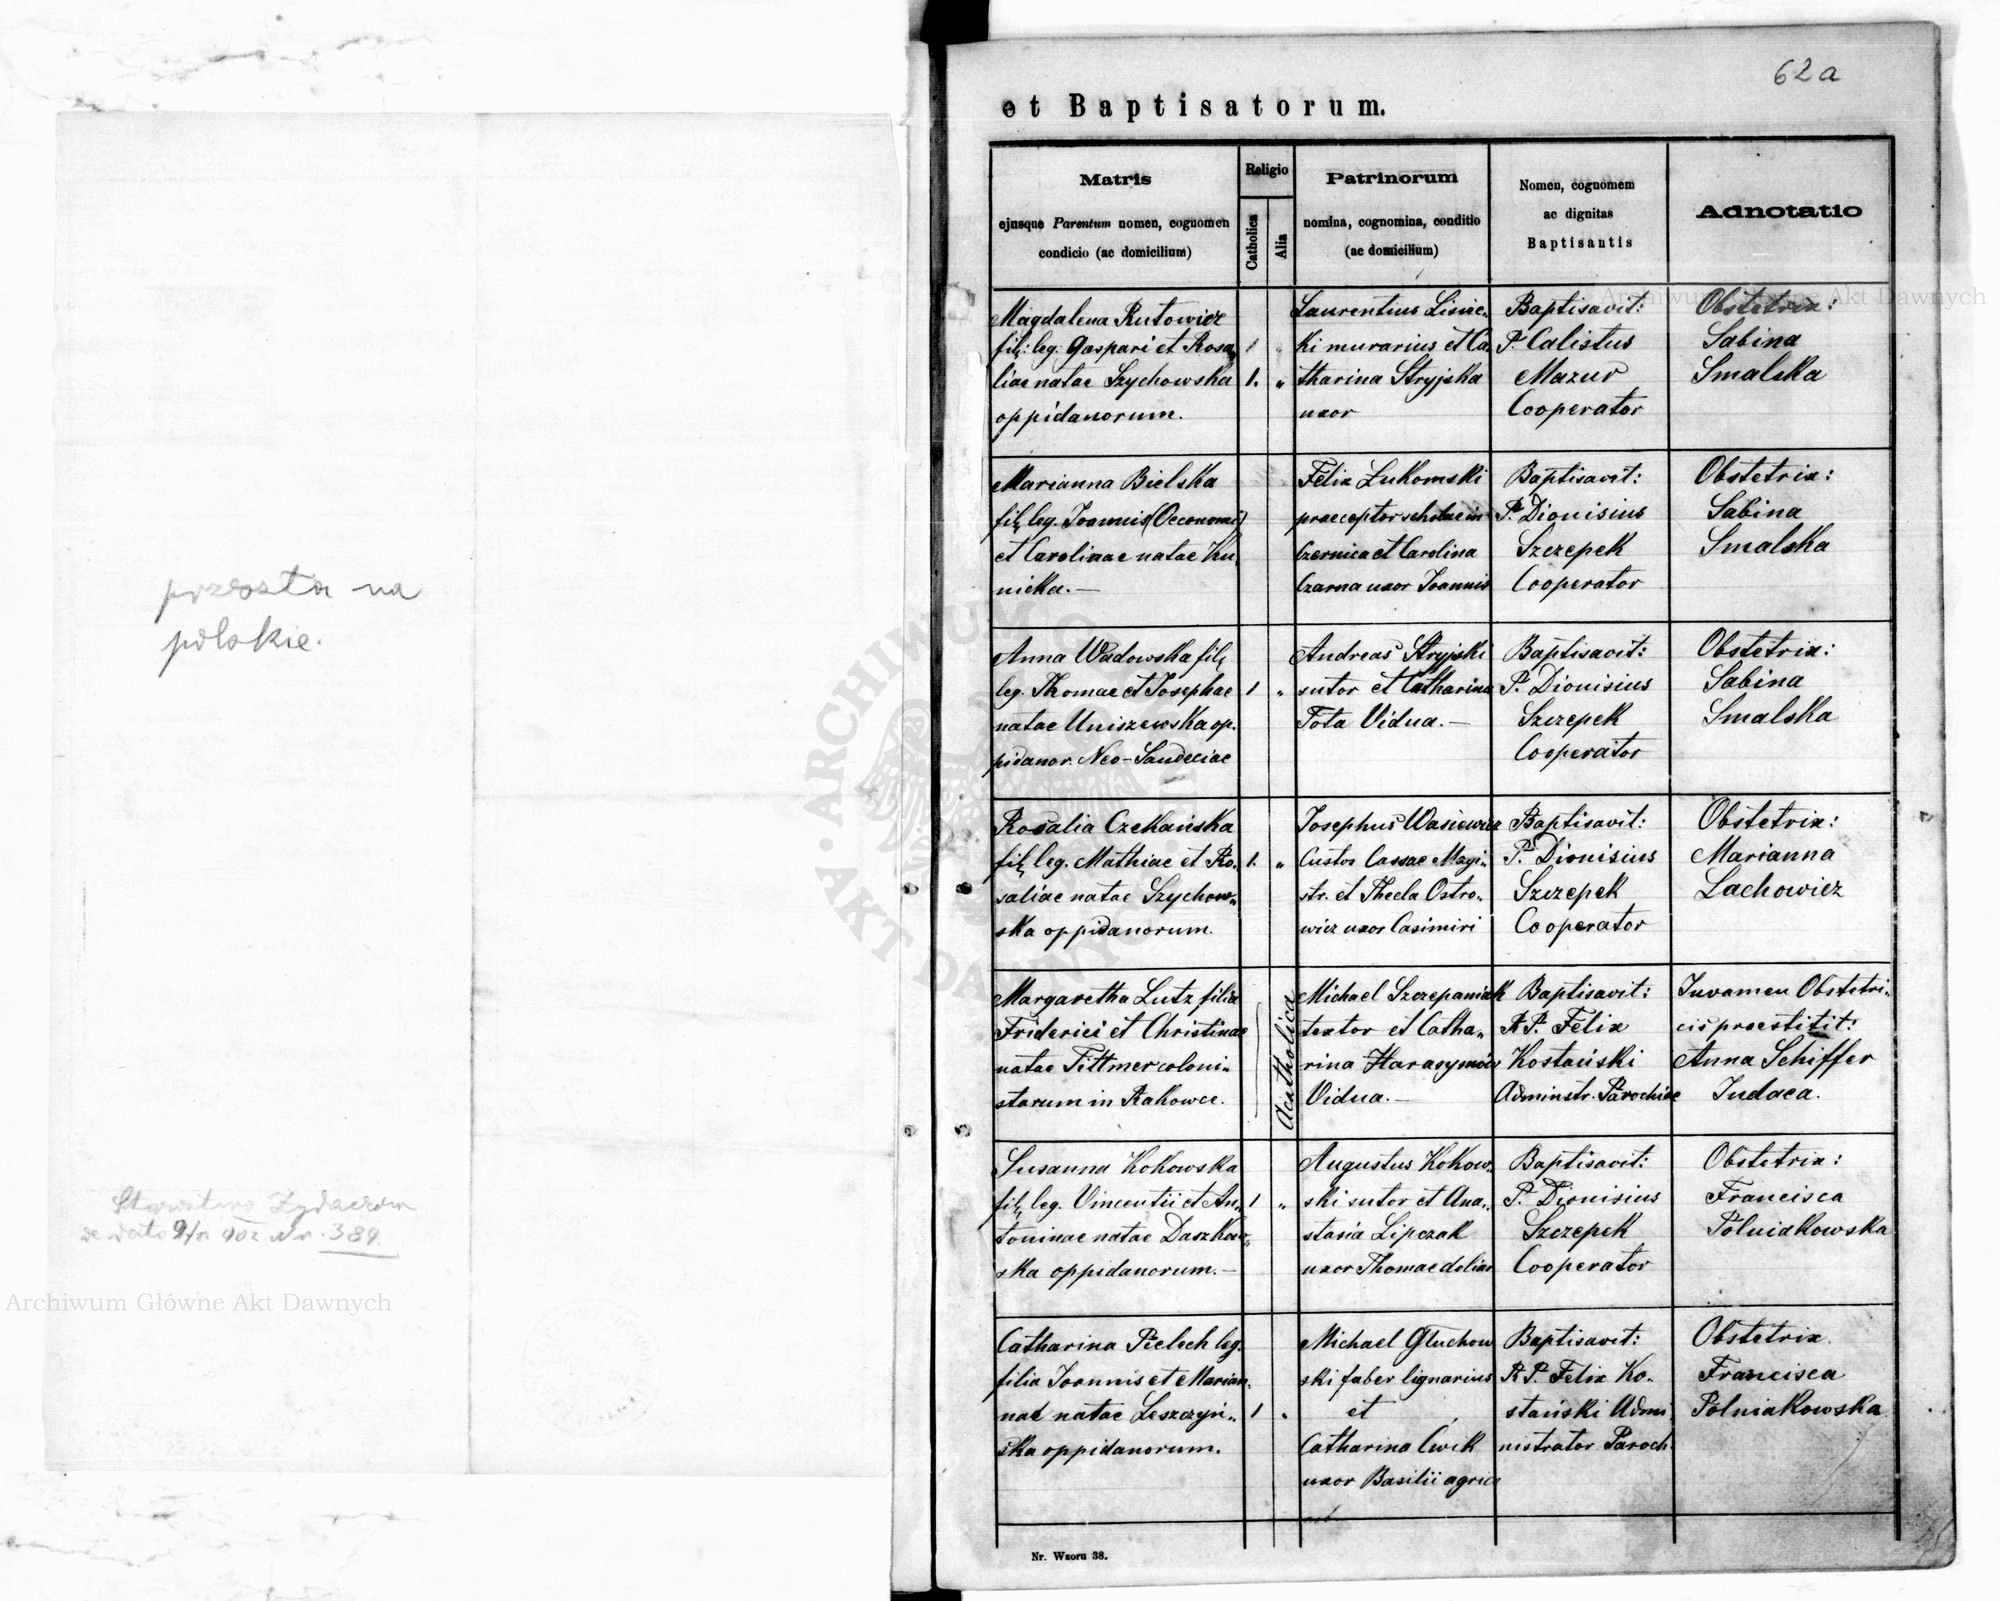 62a
et Baptisatorum.
Matris
ejusque Parentum nomen, cognomen
condicio (ac domicilium)
Religio
Catholica
Alia
Patrinorum
nomina, cognomina, conditio
(ac domicilium)
Nomen, cognomem
ac dignitas
Baptisantis
Adnotatio
Magdalena Rutowicz
fil: leg: Gaspari et Rosa„
liae natae Szychowska
oppidanorum.
1. „
Laurentius Lisiec„
ki murarius et Ca„
tharina Stryjska
uxor
Baptisavit:
P. Calistus
Mazur
Cooperator
Obstetrix:
Sabina
Smalska
Marianna Bielska
fil. leg. Joannis (Oeconomi)
et Carolinae natae Ku„
nicka.—
Felix Łukomski
praeceptor scholae in
Czernica et Carolina
Czarna uxor Joannis
Baptisavit:
P. Dionisius
Szczepek
Cooperator
Obstetrix:
Sabina
Smalska
Anna Wadowska fil.
leg. Thomae et Josephae
natae Uniszewska op.
pidanor. Neo-Sandeciae
1 „
Andreas Stryjski
sutor et Catharina
Tota Vidua.—
Baptisavit:
P. Dionisius
Szczepek
Cooperator
Obstetrix:
Sabina
Smalska
Rosalia Czekańska
fil. leg. Mathiae et Ro„
saliae natae Szychow„
ska oppidanorum.
1. „
Josephus Wasiewicz
Custos Cassae Magi„
str. et Thecla Ostro„
wicz uxor Casimiri
Baptisavit:
P. Dionisius
Szczepek
Cooperator
Obstetrix:
Marianna
Lachowicz
Margaretha Lutz filia
Friderici et Christinae
natae Tittmer coloni„
starum in Rakowce.
Acatholica
Michael Szczepaniak
textor et Catha„
rina Harasymów
Vidua.—
Baptisavit:
RP. Felix
Kostański
Adminstr. Parochiae
Iuvamen Obstetri„
cis praestitit:
Anna Schiffer
Judaea.
Susanna Kokowska
fil. leg. Vincentii et An„
toninae natae Daszkow„
ska oppidanorum.—
1 „
Augustus Kokow„
ski sutor et Ana„
stasia Lipczak
uxor Thomae doliar
Baptisavit:
P. Dionisius
Szczepek
Cooperator
Obstetrix:
Francisca
Polniakowska
Catharina Pielech leg.
filia Joannis et Marian„
nae natae Leszczyń„
ska oppidanorum.
1 „
Michael Głuchow
ski faber lignarius
et
Catharina Ćwik
uxor Basilii agric
Baptisavit:
RP. Felix Ko„
stański Admi
nistrator Paroch.
Obstetrix
Francisca
Polniakowska
Nr. Wzoru 38.
przeosta na
polskie.
de dato 902 Nr. 389.
Archiwum Główne Akt Dawnych
Archiwum Główne Akt Dawnych
ARCHIWUM
AKT DAWNYCH